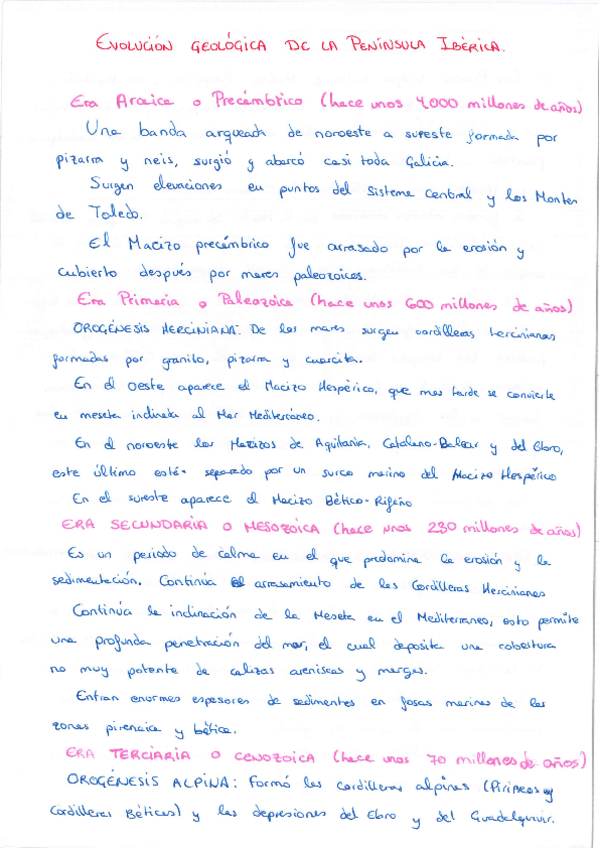 EVOLUCIÓN GEOLÓGICA DE LA PENÍNSULA IBÉRICA.
Era Arcaica o Precámbrico (hace unos 4.000 millones de años)
Una banda arqueada de noroeste a sureste formada por
pizarra y neis, surgió y abarcó casi toda Galicia.
Surgen elevaciones en puntos del Sistema Central y los Montes
de Toledo.
El Macizo precámbrico fue arrasado por la erosión y
cubierto después por mares paleozoicos.
Era Primaria o Paleozoica (hace unos 600 millones de años)
OROGÉNESIS HERCINIANA: De los mares surgen cordilleras hercinianas
formadas por granito, pizarra y cuarcita.
En el oeste aparece el Macizo Hespérico, que mas tarde se convierte
en meseta inclinada al Mar Mediterráneo.
En el noroeste los Macizos de Aquitania, Catalano-Balear y del Ebro,
este último está separado por un surco marino del Macizo Hespérico
En el sureste aparece el Macizo Bético-Rifeño
ERA SECUNDARIA O MESOZOICA (hace unos 230 millones de años)
Es un periodo de calma en el que predomina la erosión y la
sedimentación. Continúa el arrasamiento de las Cordilleras Hercinianas
Continúa la inclinación de la Meseta en el Mediterraneo, esto permite
una profunda penetración del mar, el cual deposita una cobertura
no muy potente de calizas areniscas y margas.
Entran enormes espesores de sedimentos en fosas marinas de las
zonas pirenaica y bética.
ERA TERCIARIA O CENOZOICA (hace unos 70 millones de años)
OROGÉNESIS ALPINA: Formó las cordilleras alpinas (Pirineos y
Cordilleras Béticas) y las depresiones del Ebro y del Guadalquivir.